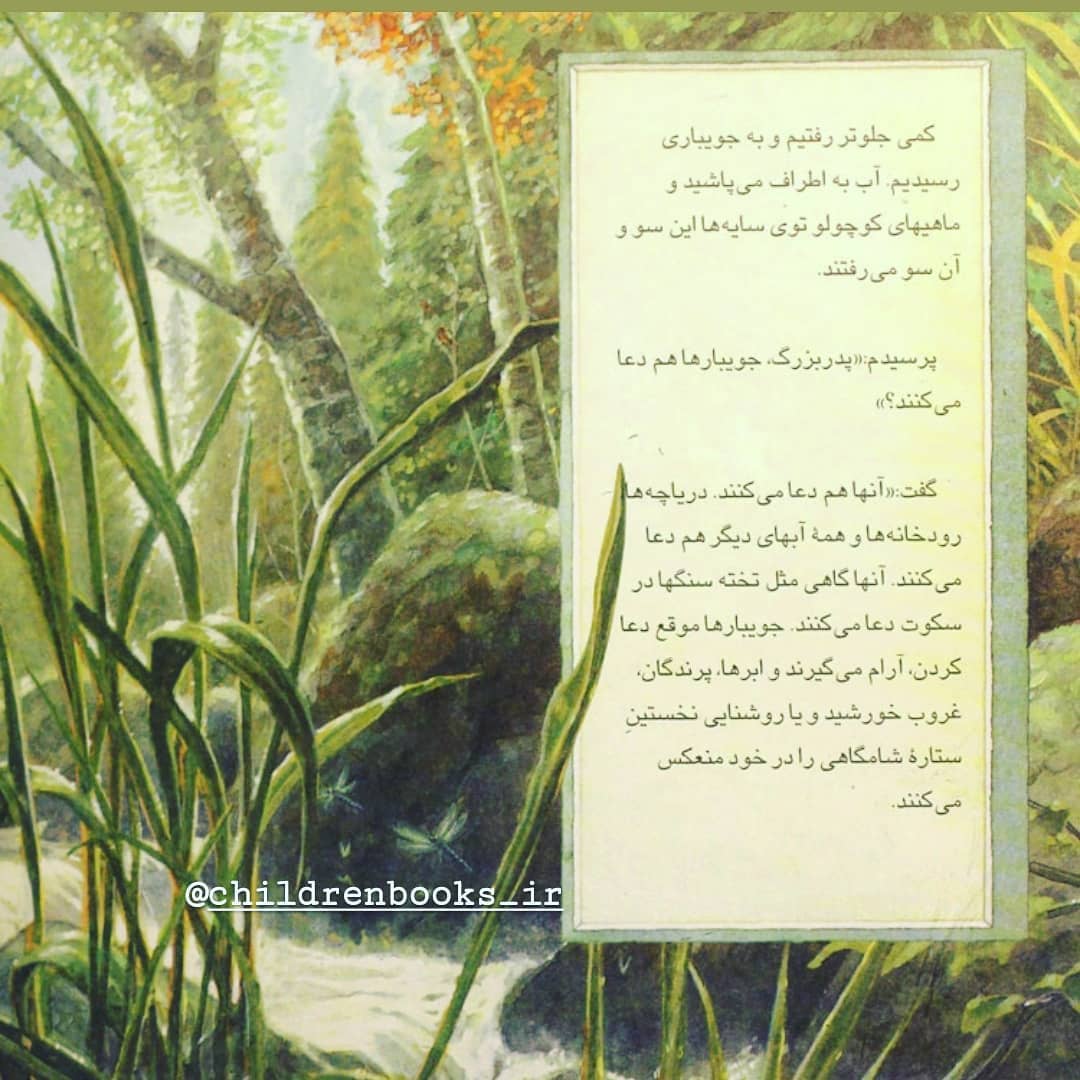 کمی جلوتر رفتیم و به جویباری
رسیدیم. آب به اطراف می‌پاشید و
ماهیهای کوچولو توی سایه‌ها این سو و
آن سو می‌رفتند.
پرسیدم:«پدربزرگ، جویبارها هم دعا
می‌کنند؟»
گفت:«آنها هم دعا می‌کنند. دریاچه‌ها،
رودخانه‌ها و همهٔ آبهای دیگر هم دعا
می‌کنند. آنها گاهی مثل تخته سنگها در
سکوت دعا می‌کنند. جویبارها موقع دعا
کردن، آرام می‌گیرند و ابرها، پرندگان،
غروب خورشید و یا روشنایی نخستینِ
ستارهٔ شامگاهی را در خود منعکس
می‌کنند.
@childrenbooks_ir